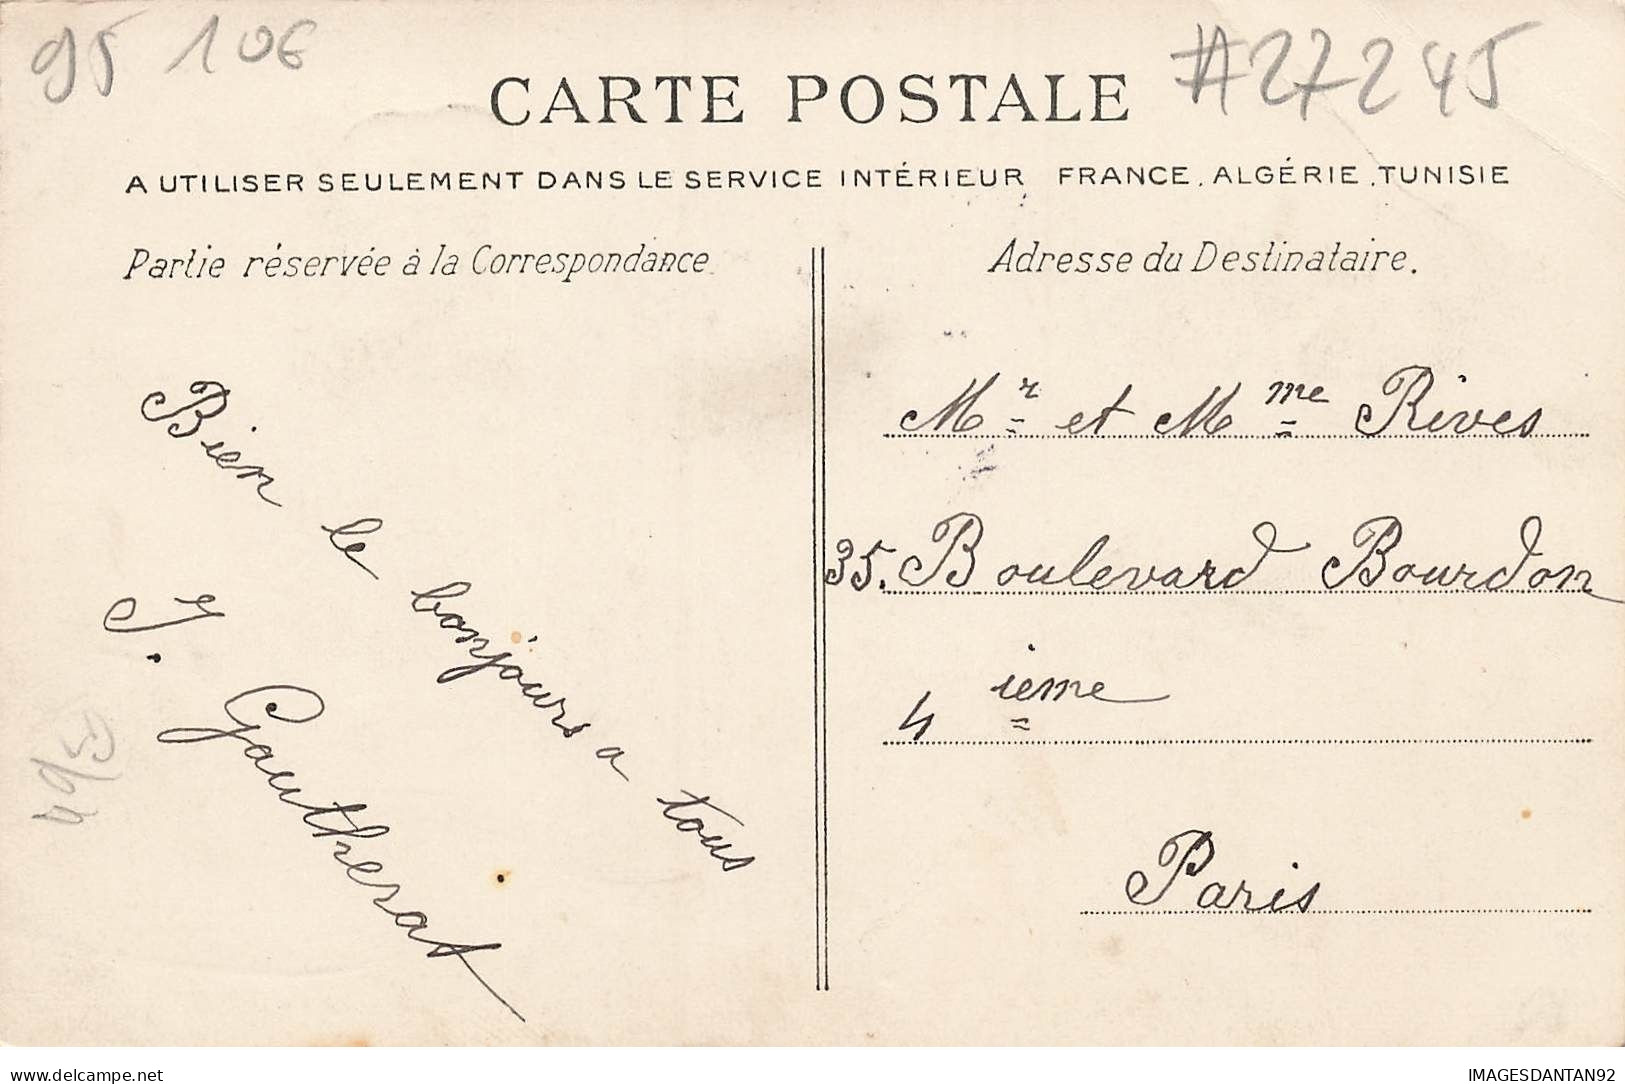 95 10€
#27245
CARTE POSTALE
A UTILISER SEULEMENT DANS LE SERVICE INTÉRIEUR FRANCE, ALGÉRIE, TUNISIE
Partie réservée à la Correspondance
Bien le bonjours a tous
J. Gautherat
Adresse du Destinataire.
Mr et Mme Rives
35. Boulevard Bourdon
4 ieme
Paris
delcampe.net
IMAGESDANTAN92